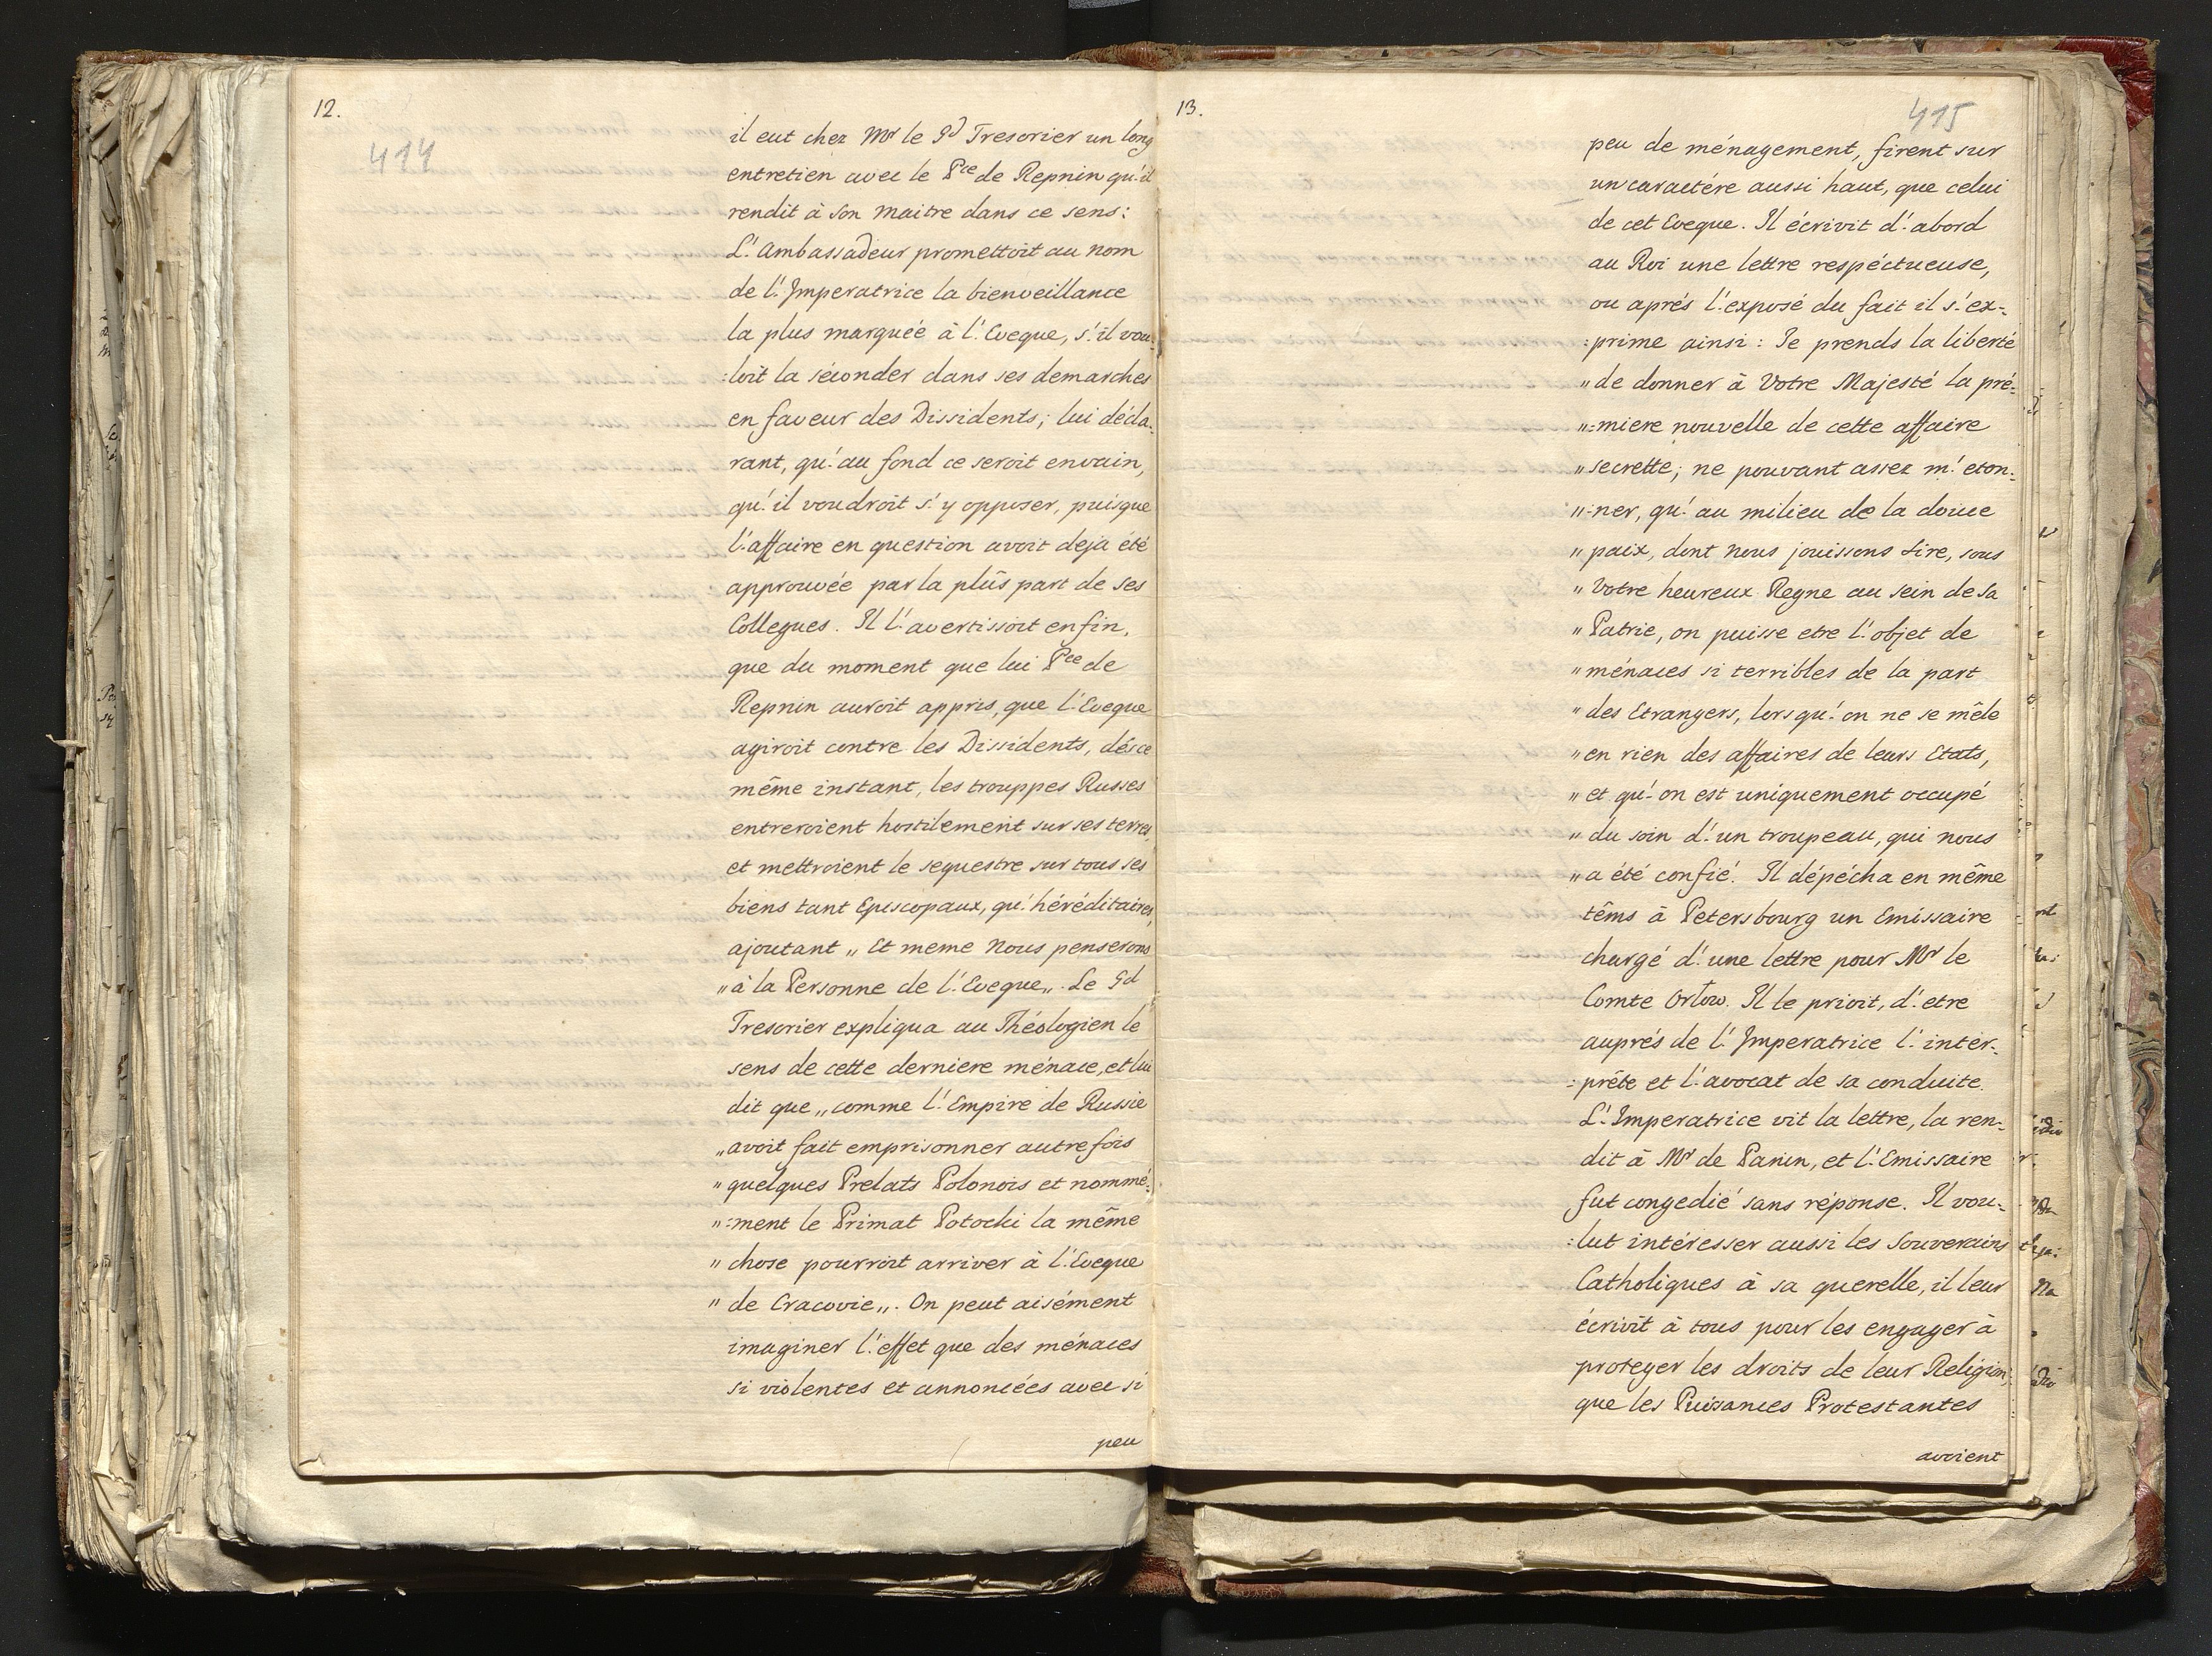 12.
414
il eut chez Mr le Gd Tresorier un long
entretien avec le Pce de Repnin qu'il
rendit à son maitre dans ce sens:
L'Ambassadeur promettoit au nom
de l'Imperatrice la bienveillance
la plus marquée à l'Eveque, s'il vou-
:loit la séconder dans ses demarches
en faveur des Dissidents; lui décla-
rant, qu'au fond ce seroit envain,
qu'il voudroit s'y opposer, puisque
l'affaire en question avoit deja été
approuvée par la plûs part de ses
Collegues. Il l'avertissoit enfin,
que du moment que lui Pce de
Repnin auroit appris, que l'Eveque
agiroit contre les Dissidents, dés ce
même instant, les trouppes Russes
entreroient hostilement sur ses terres,
et mettroient le sequestre sur tous ses
biens tant Episcopaux, qu'héréditaires,
ajoutant „ Et meme Nous penserons
„ à la Personne de l'Eveque „. Le Gd
Tresorier expliqua au Théologien le
sens de cette derniere ménace, et lui
dit que „ comme l'Empire de Russie
„ avoit fait emprisonner autrefois
„ quelques Prelats Polonois et nommé-
„ :ment le Primat Potocki la même
„ chose pourroit arriver à l'Eveque
„ de Cracovie „. On peut aisément
imaginer l'effet que des ménaces
si violentes et annoncées avec si
peu
13.
415
peu de ménagement, firent sur
un caractére aussi haut, que celui
de cet Eveque. Il écrivit d'abord
au Roi une lettre respéctueuse,
ou aprés l'exposé du fait il s'ex-
:prime ainsi: Je prends la liberté
„ de donner à Votre Majesté la pré-
„ :miere nouvelle de cette affaire
„ secrette; ne pouvant assez m'eton-
„ :ner, qu'au milieu de la douce
„ paix, dont nous jouissons Sire, sous
„ Votre heureux Regne au sein de sa
„ Patrie, on puisse etre l'objet de
„ ménaces si terribles de la part
„ des Etrangers, lors qu'on ne se mêle
„ en rien des affaires de leurs Etats,
„ et qu'on est uniquement occupé
„ du soin d'un troupeau, qui nous
„ a été confié. Il dépécha en même
têms à Petersbourg un Emissaire
chargé d'une lettre pour Mr le
Comte Orlow. Il le prioit, d'etre
auprés de l'Imperatrice l'inter-
:préte et l'avocat de sa conduite.
L'Imperatrice vit la lettre, la ren-
dit à Mr de Panin, et l'Emissaire
fut congedié sans réponse. Il vou-
:lut intéresser aussi les Souverains
Catholiques à sa querelle, il leur
écrivit à tous pour les engager à
proteger les droits de leur Religion,
que les Puissances Protestantes
avoient